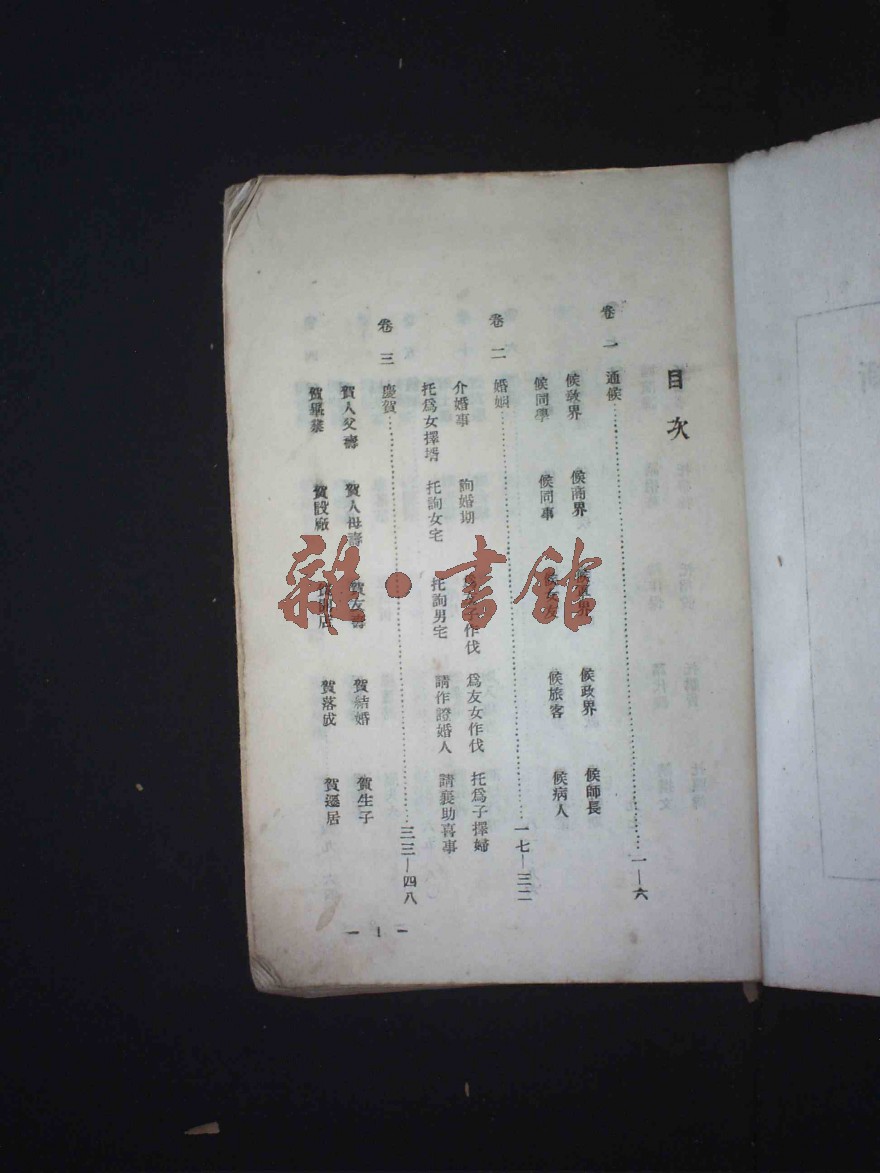 目次
卷一 通候……一—六
候政界 候商界 候軍界 候政界 候師長
候同學 候同事 候女友 候旅客 候病人
卷二 婚姻……一七—三二
介婚事 詢婚期 子作伐 爲友女作伐 托爲子擇婦
托爲女擇壻 托詢女宅 托詢男宅 請作證婚人 請襄助喜事
卷三 慶賀……三三—四八
賀人父壽 賀人母壽 賀友壽 賀結婚 賀生子
賀畢業 賀設廠 賀開店 賀落成 賀遷居
— 1 —
雜·書館